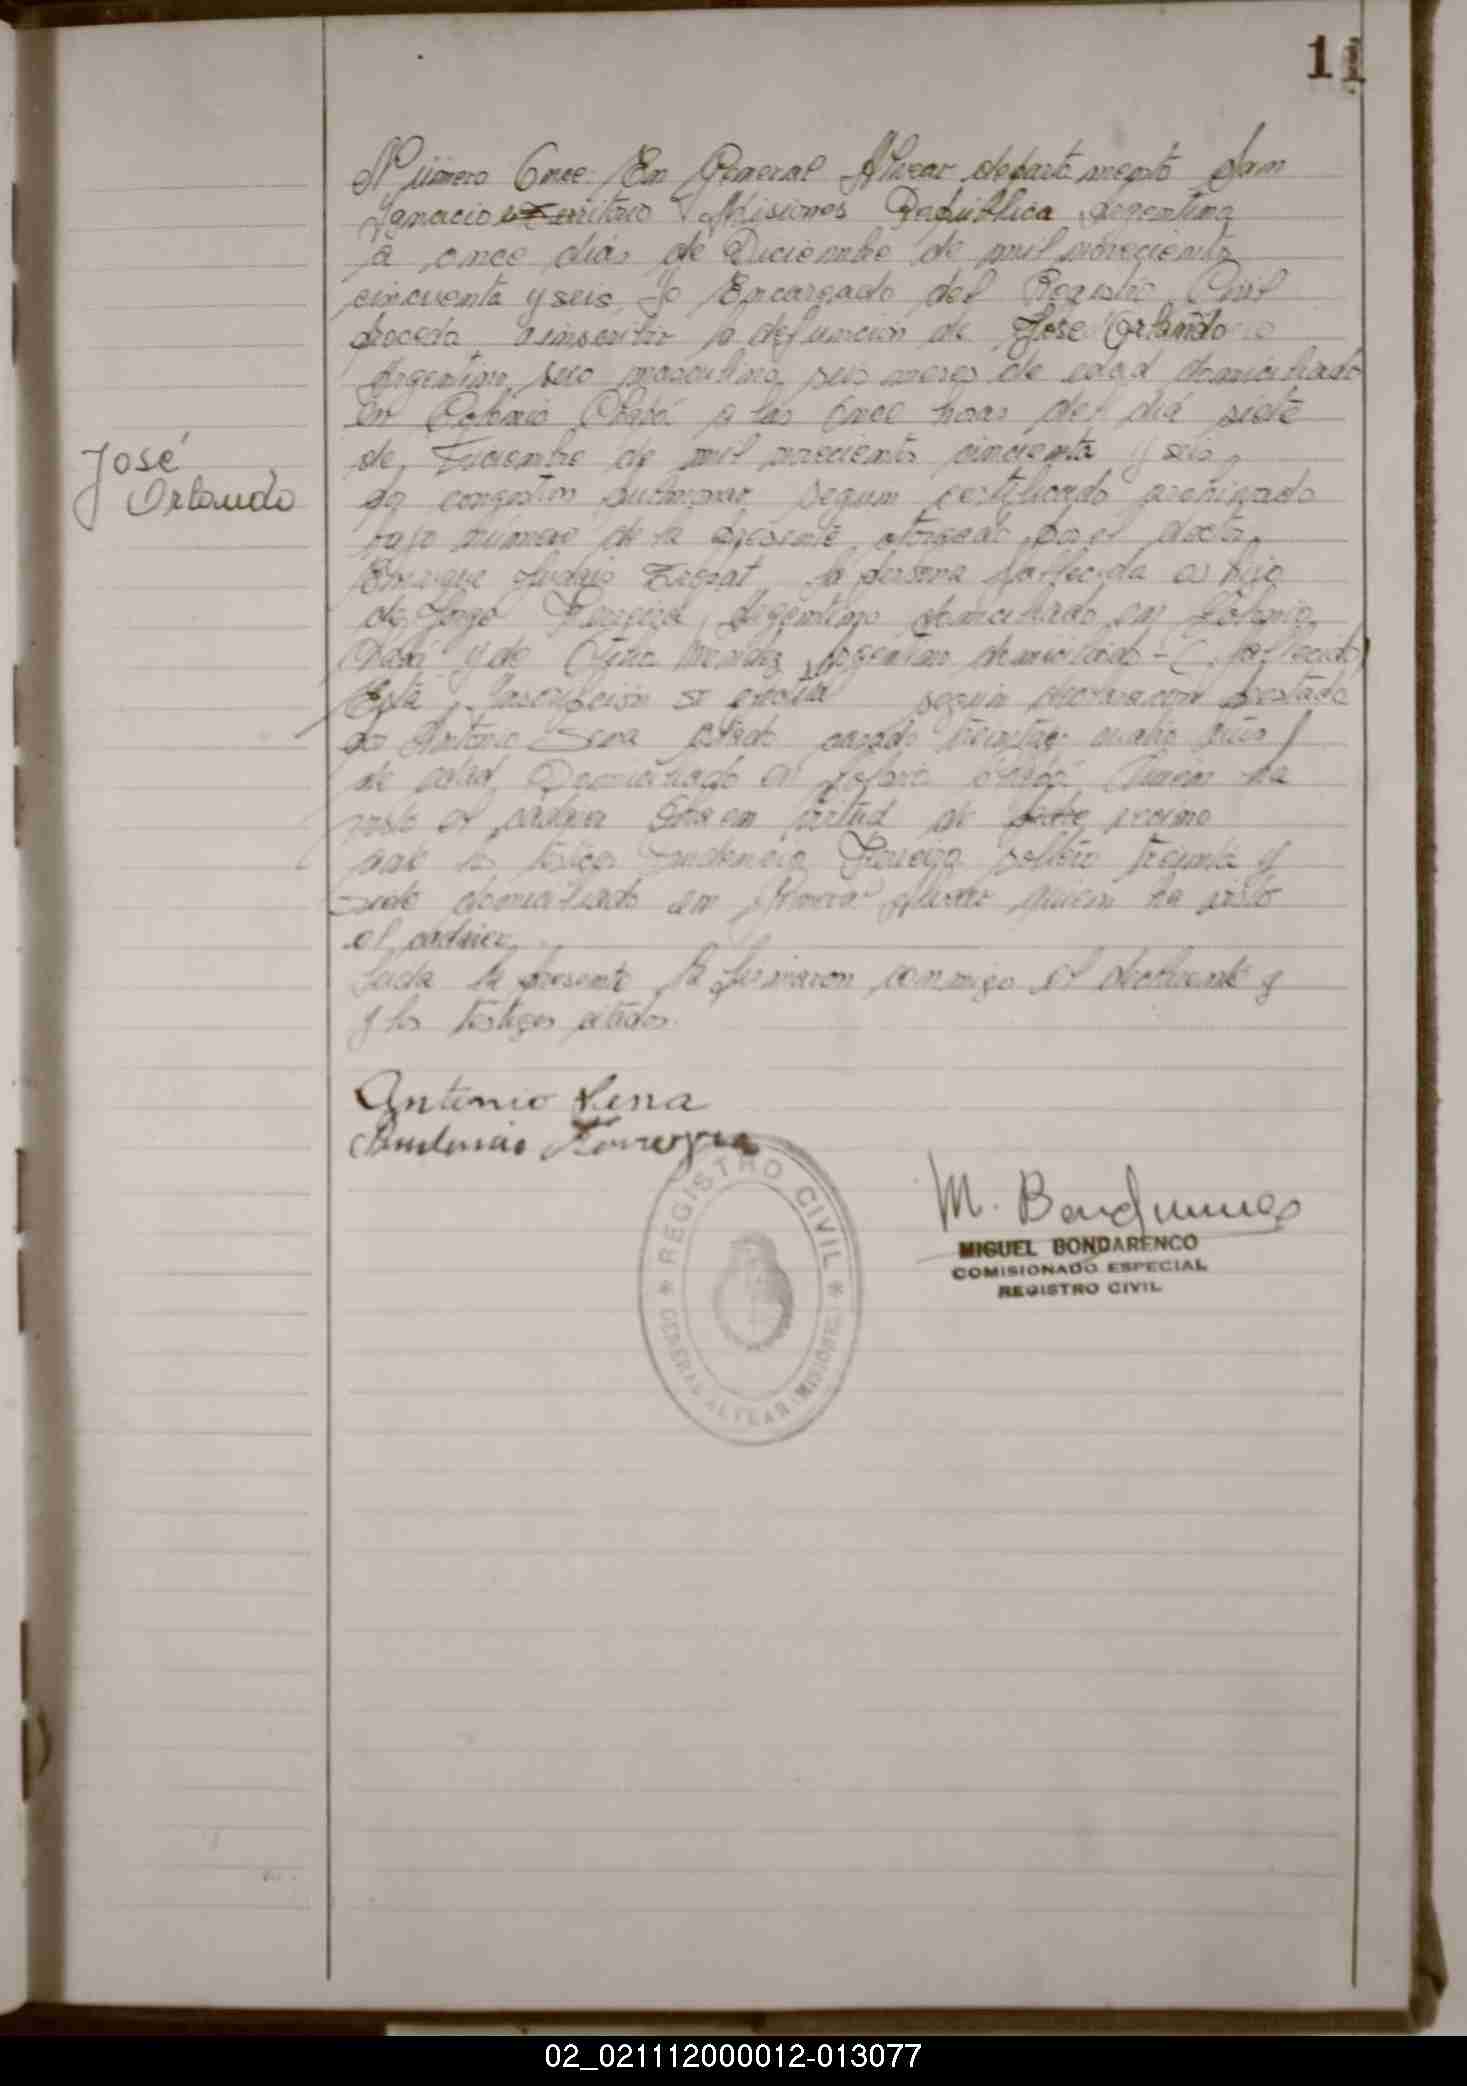 11
Número Once En General Alvear departamento San
Ignacio Territorio Misiones República Argentina
a once días de Diciembre de mil novecientos
cincuenta y seis, Yo Encargado del Registro Civil
procedo a inscribir la defunción de José Orlando
Argentino, sexo masculino, seis meses de edad domiciliado
en Colonia Chapá a las Once horas del día siete
de Diciembre de mil novecientos cincuenta y seis
de congestión pulmonar segun certificado archivado
bajo número de la presente otorgado por el doctor
Enrique la persona fallecida es hijo
de Jorge Ferreira, Argentino domiciliado en Colonia
Chapá y de Mendez, argentina domiciliado - (fallecida)
Esta Inscripción se efectúa según declaracion prestada
por Antonio Sena casado treinta cuatro años
de edad Domiciliado en Colonia Chapá Quien ha
visto el cadaver
ante los testigos Ferreyra soltero treinta y
siete domiciliado en General Alvear quien ha visto
el cadaver
Leida la presente la firmaron conmigo el declarante y
y los testigos citados.
José
Orlando
Antonio Sena
Ferreyra
REGISTRO CIVIL
GENERAL ALVEAR (MISIONES)
M. Bondarenco
MIGUEL BONDARENCO
COMISIONADO ESPECIAL
REGISTRO CIVIL
02_021112000012-013077